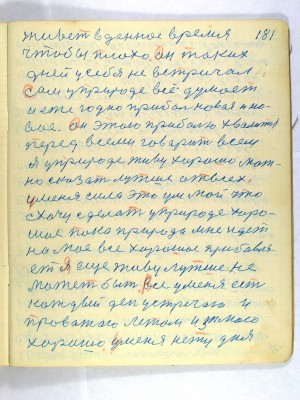 живет в данное время 181
чтобы плохо. Он таких
дней у себя не встричал
Сам уприроде всё думает
и ежегодно прибал новая и но-
вая. Он этого прибалю хвалитц
перед всеми говарит всем
я уприроде живу хорошо мож-
но сказат лутше от всех
уменя сила это ум мой что
схочу сделат уприроде хоро-
шие пока природа мне идет
на моя все хорошое прибавля-
ет Я еще живу лутше не
может быт все уменя ест
каждый ден устречаю и
проважаю летом и зимою
хорошо уменя нету дня